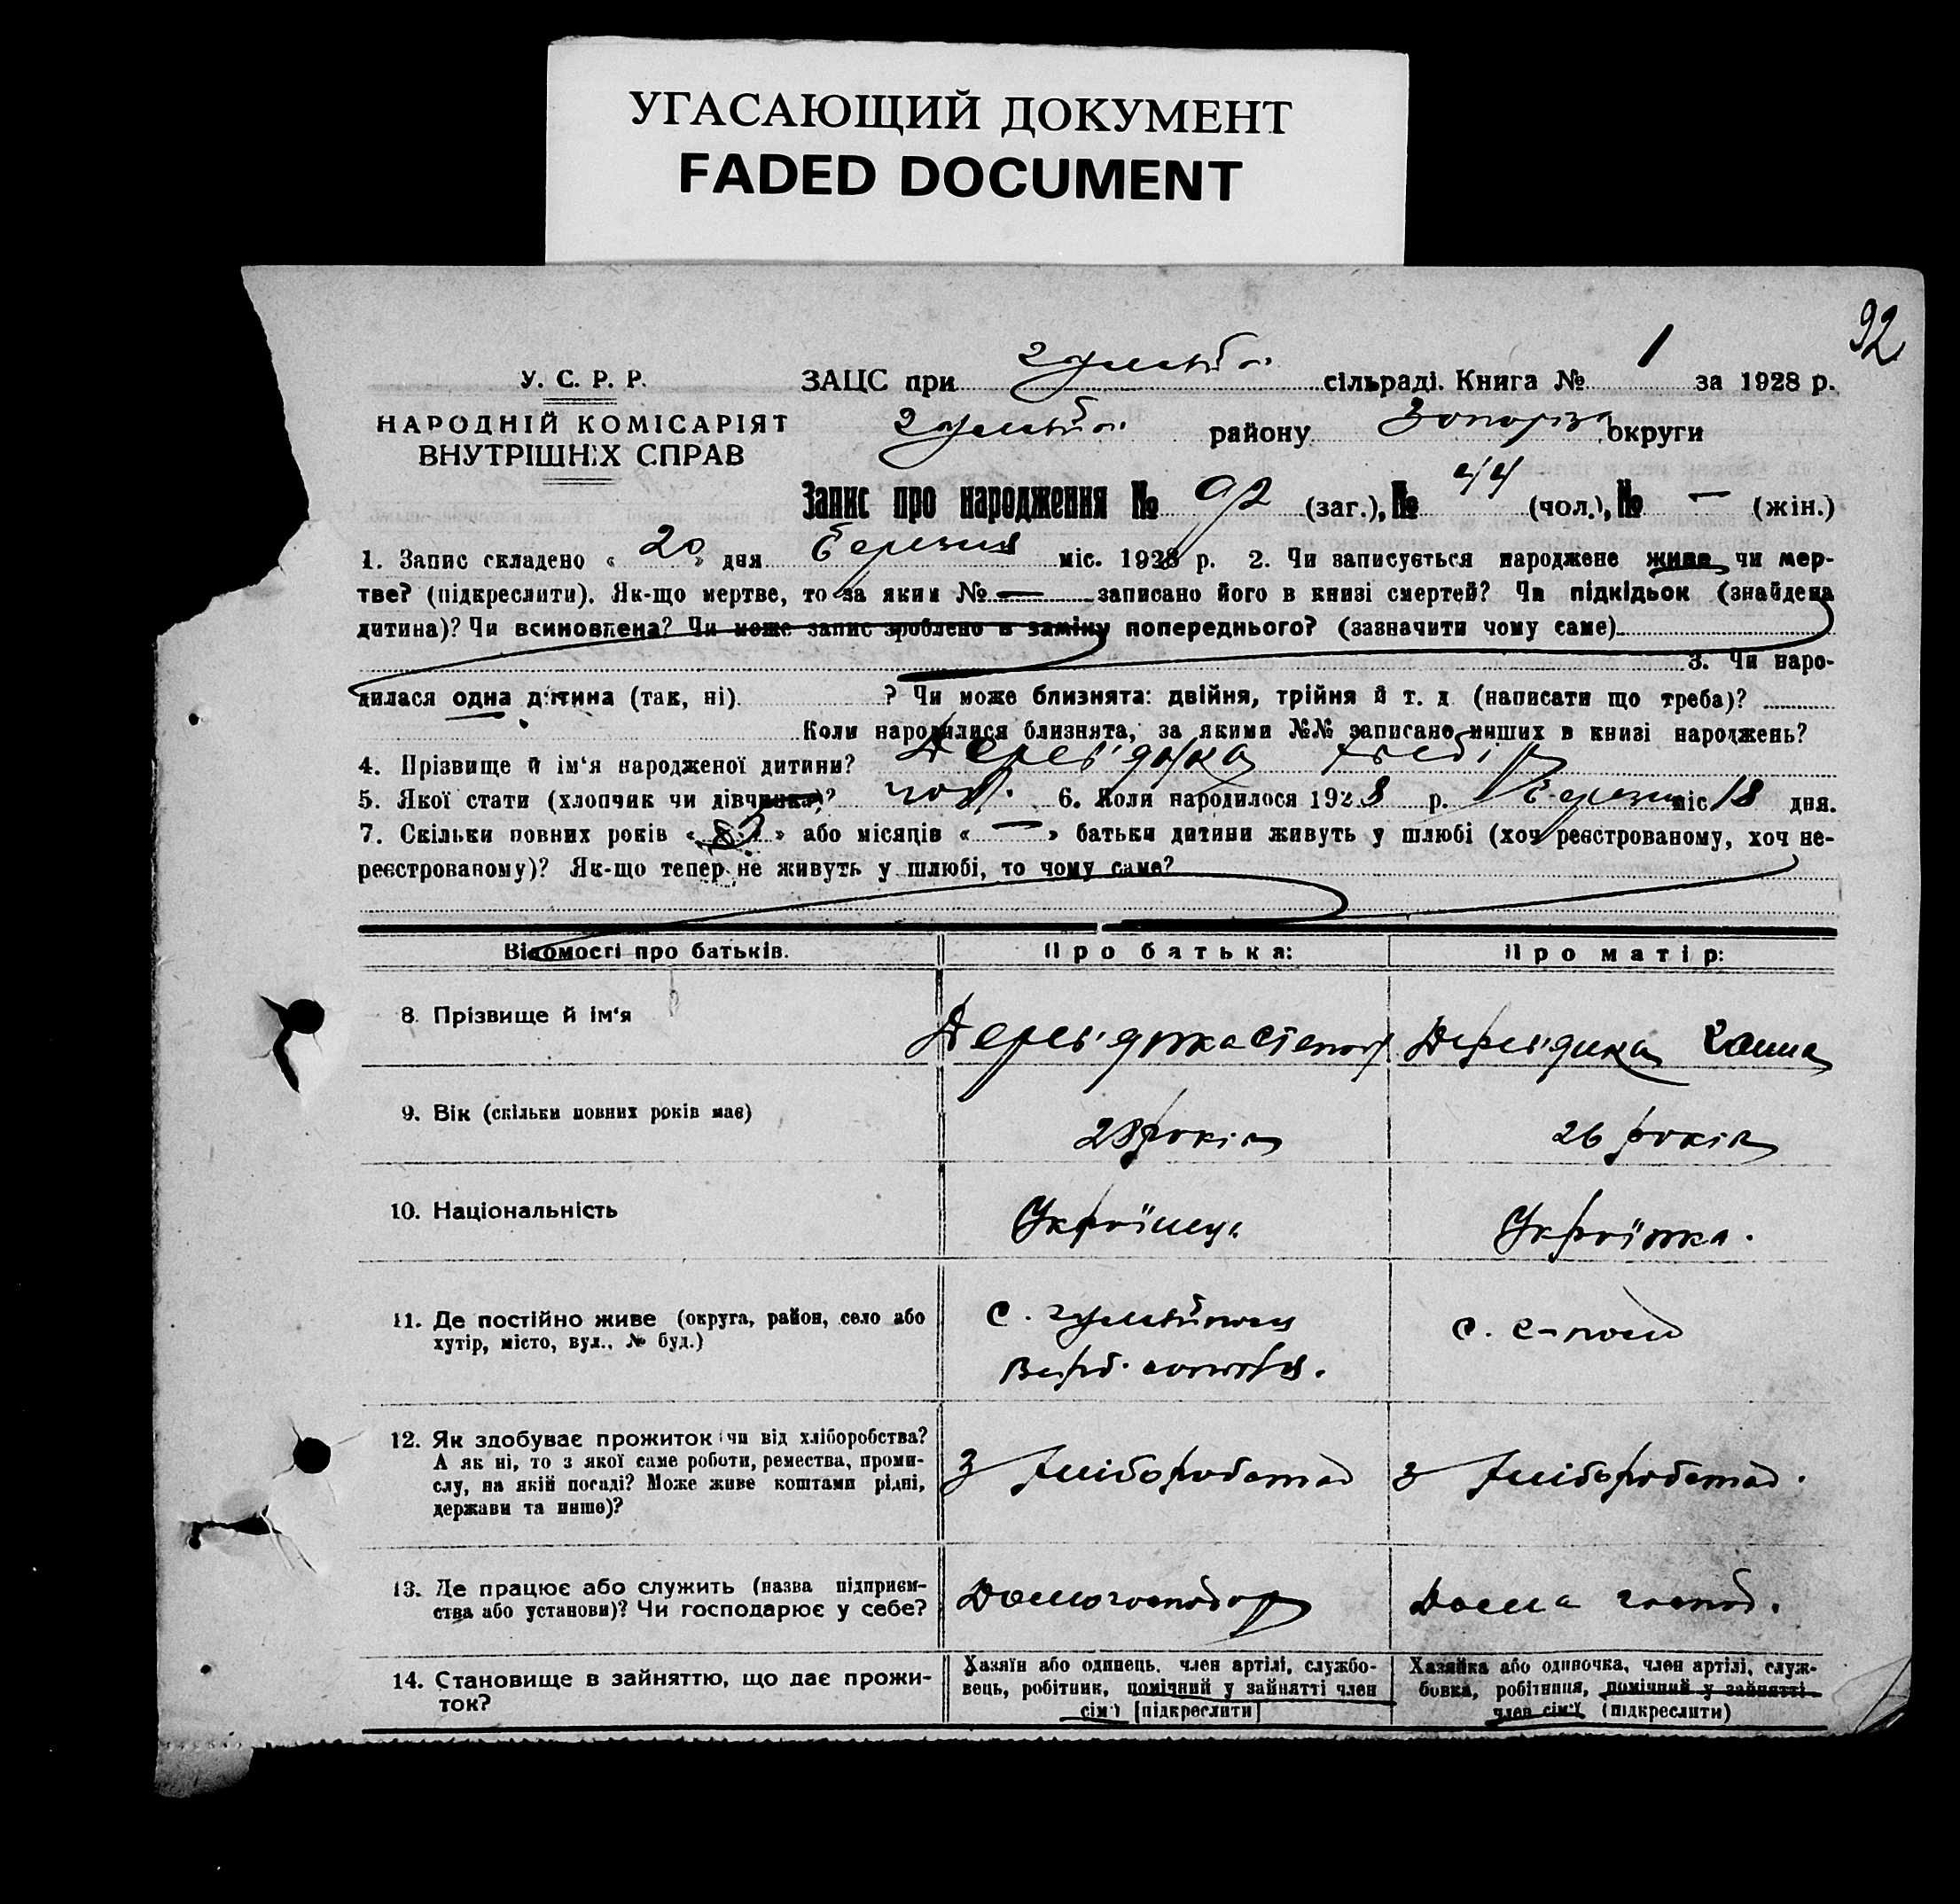 УГАСАЮЩИЙ ДОКУМЕНТ
FADED DOCUMENT
92
У. С. Р. Р.
НАРОДНІЙ КОМІСАРІЯТ
ВНУТРІШНІХ СПРАВ
ЗАЦС при Гуляйп. сільраді. Книга № 1 за 1928 р.
Гуляйп. району Запорізь округи
Запис про народження № 92 (заг.), № 44 (чол.), № — (жін.)
1. Запис складено « 20 » дня березня міс. 1928 р. 2. Чи записується народжене живе чи мер-
тве? (підкреслити). Як-що мертве, то за яким № — записано його в книзі смертей? Чи підкідьок (знайдена
дитина)? Чи всиновлена? Чи може запис зроблено в заміну попереднього? (зазначити чому саме)
3. Чи наро-
дилася одна дитина (так, ні) ? Чи може близнята: двійня, трійня й т. д. (написати що треба)?
Коли народилися близнята, за якими №№ записано инших в книзі народжень?
4. Прізвище й ім‘я народженої дитини? Дерев'янка
5. Якої стати (хлопчик чи дівчинка)? чол. 6. Коли народилося 1928 р. березня міс 18 дня.
7. Скільки повних років « » або місяців « — » батьки дитини живуть у шлюбі (хоч реєстрованому, хоч не-
реєстрованому)? Як-що тепер не живуть у шлюбі, то чому саме?
Відомості про батьків. Про батька: Про матір:
8. Прізвище й ім‘я Дерев'янка Степан Дерев'янка Ганна
9. Вік (скільки повних років має) 28 років 26 років
10. Національність Українець Українка.
11. Де постійно живе (округа, район, село або
хутір, місто, вул., № буд.)
с. Гуляйполе
с. Г-поле
12. Як здобуває прожиток чи від хліборобства?
А як ні, то з якої саме роботи, ремества, проми-
слу, на якій посаді? Може живе коштами рідні,
держави та инше)?
З хліборобства З хліборобства.
13. Де працює або служить (назва підприєм-
ства або установи)? Чи господарює у себе?
Домогосподар Дома господ.
14. Становище в зайняттю, що дає прожи-
ток?
Хазяїн або одинець, член артілі, службо-
вець, робітник, помічний у зайнятті член
сім‘ї [підкреслити]
Хазяйка або одиночка, член артілі, служ-
бовка, робітниця, помічний у зайнятті
член сім‘ї (підкреслити)